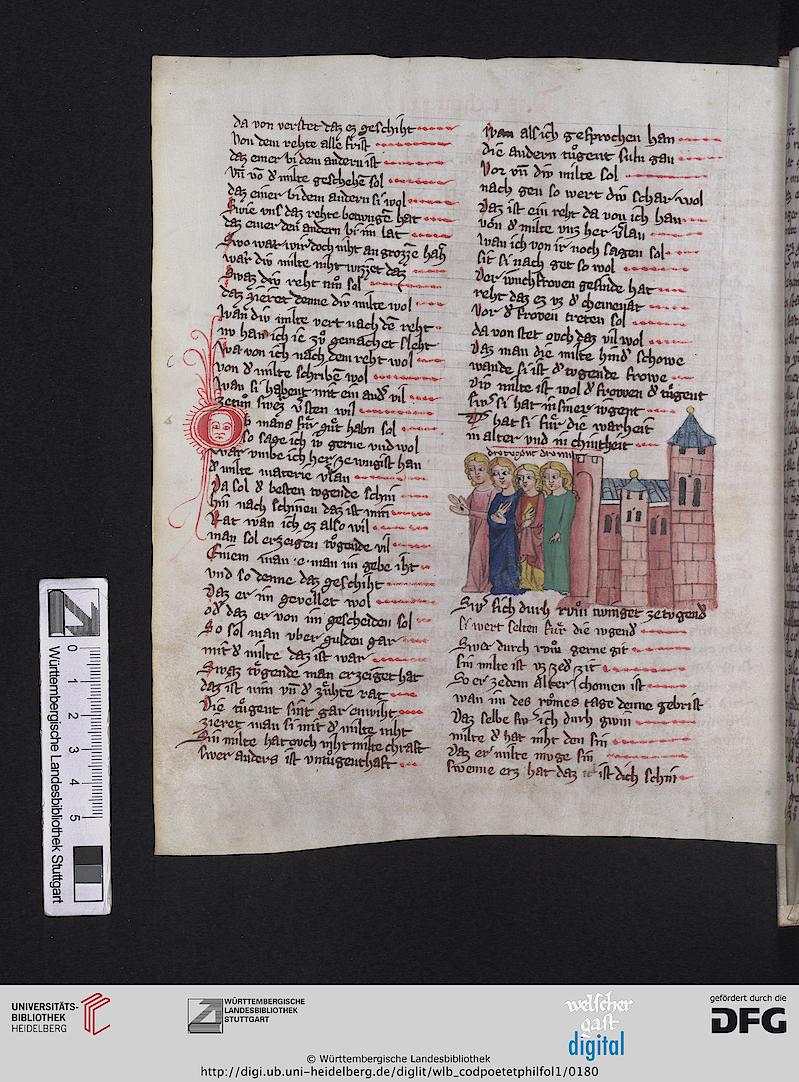 da von verstet daz ez geschiht
Von dem rehte alle frist
daz einer bi dem andern ist
Vn̄ vō d᾽ milte geschehē sol
daz einer bi dem andern si wol
Swie vns daz rehte betwngē hat
daz einer den andern bi im lat
Swo war wir doch niht an grozze hab
wār diu milte niht wizzet daz
Swaz diu reht nim sol
daz zieret denne diu milte wol
Wan diu milte vert nach dē reht
nv han ich ie zv̊ gemachet sleht
Wa von ich nach dem reht wol
von d᾽ milte schribē wol
wan si habent mit ein and᾽ vil
zetv̊n swez v᾽sten wil
Ob mans fu̔r gu̔t habn sol
so sage ich iv gerne vnd wol
war vmbe ich her ze ivngist han
d᾽ milte materie v᾽lan
Da sol d᾽ besten tvgende schin
hin nach schinen daz ist min
Rat wan ich ez also wil
man sol erzeigen tv̊gende vil
Einem man e man im gebe iht
vnd so denne daz geschiht
Daz er im gevellet wol
od᾽ daz er von im gescheiden sol
So sol man vber gulden gar
mit d᾽ milte daz ist war
Swaz tv̊gende man erzeiget hat
daz ist vm vn̄ d᾽ zu̔hte rat
Die tv̊gent sint gar enwiht
zieret man si mit d᾽ milte niht
Sin milte hat ovch niht milte chraft
swer anders ist vntv̊genthaft
Wan als ich gesprochen han
die andern tv̊gent suln gan
Vor vn̄ div milte sol
nach gen so wert div schar wol
Daz ist ein reht da von ich han
von d᾽ milte vnz her v᾽lan
Wan ich von ir noch sagen sol
sit si nach get so wol
Der ivnchfroven gesinde hat
reht daz ez vz d᾽ chemenat
Vor d᾽ froven treten sol
da von stet ovch daz vil wol
Daz man die milte hind᾽ schowe
wande si ist d᾽ tvgende frowe
Div milte ist wol d᾽ frowen d᾽ tv̊gent
sw᾽ si hat in siner ivgent
Der hat si fu̔r die warheit
in alter vnd in chintheit
die tvgent div milt
Sw᾽ sich durh rv̊m twinget ze tvgend
si wert selten fu̔r die ivgend
Swer durch rv̊m gerne git
sin milte ist vz ze d᾽ zit
So er ze dem alter chomen ist
wan im des rv̊mes tage denne gebrist
Daz selbe sw᾽ ich durh gwin
milte d᾽ hat niht den sin
Daz er milte mvge sin
swenne erz hat daz ist dich schin
Württembergische Landesbibliothek Stuttgart
0 1 2 3 4 5
UNIVERSITÄTS-
BIBLIOTHEK
HEIDELBERG
WÜRTTEMBERGISCHE
LANDESBIBLIOTHEK
STUTTGART
welscher
gast
digital
gefördert durch die
DFG
© Württembergische Landesbibliothek
http://digi.ub.uni-heidelberg.de/diglit/wlb_codpoetetphilfol1/0180